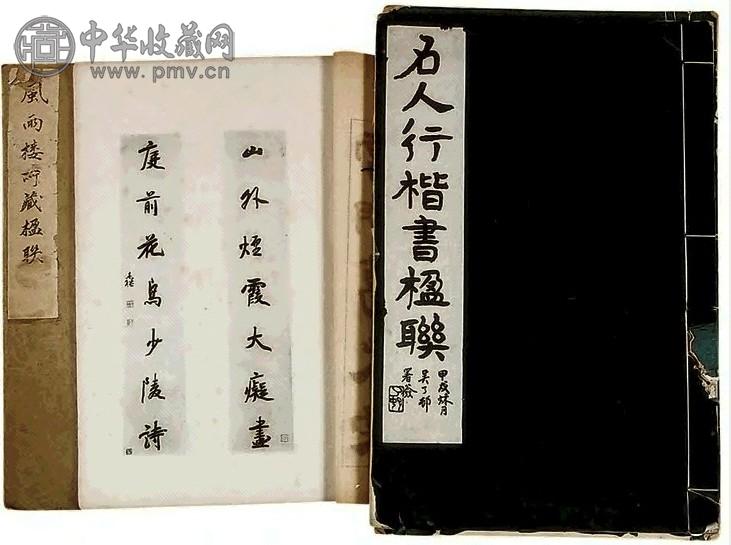 中华收藏网
www.pmv.cn
風雨楼所藏楹聯
山外烟霞大癡畫
庭前花鳥少陵詩
名人行楷書楹聯
甲戌烁月
吴了邨
署檢